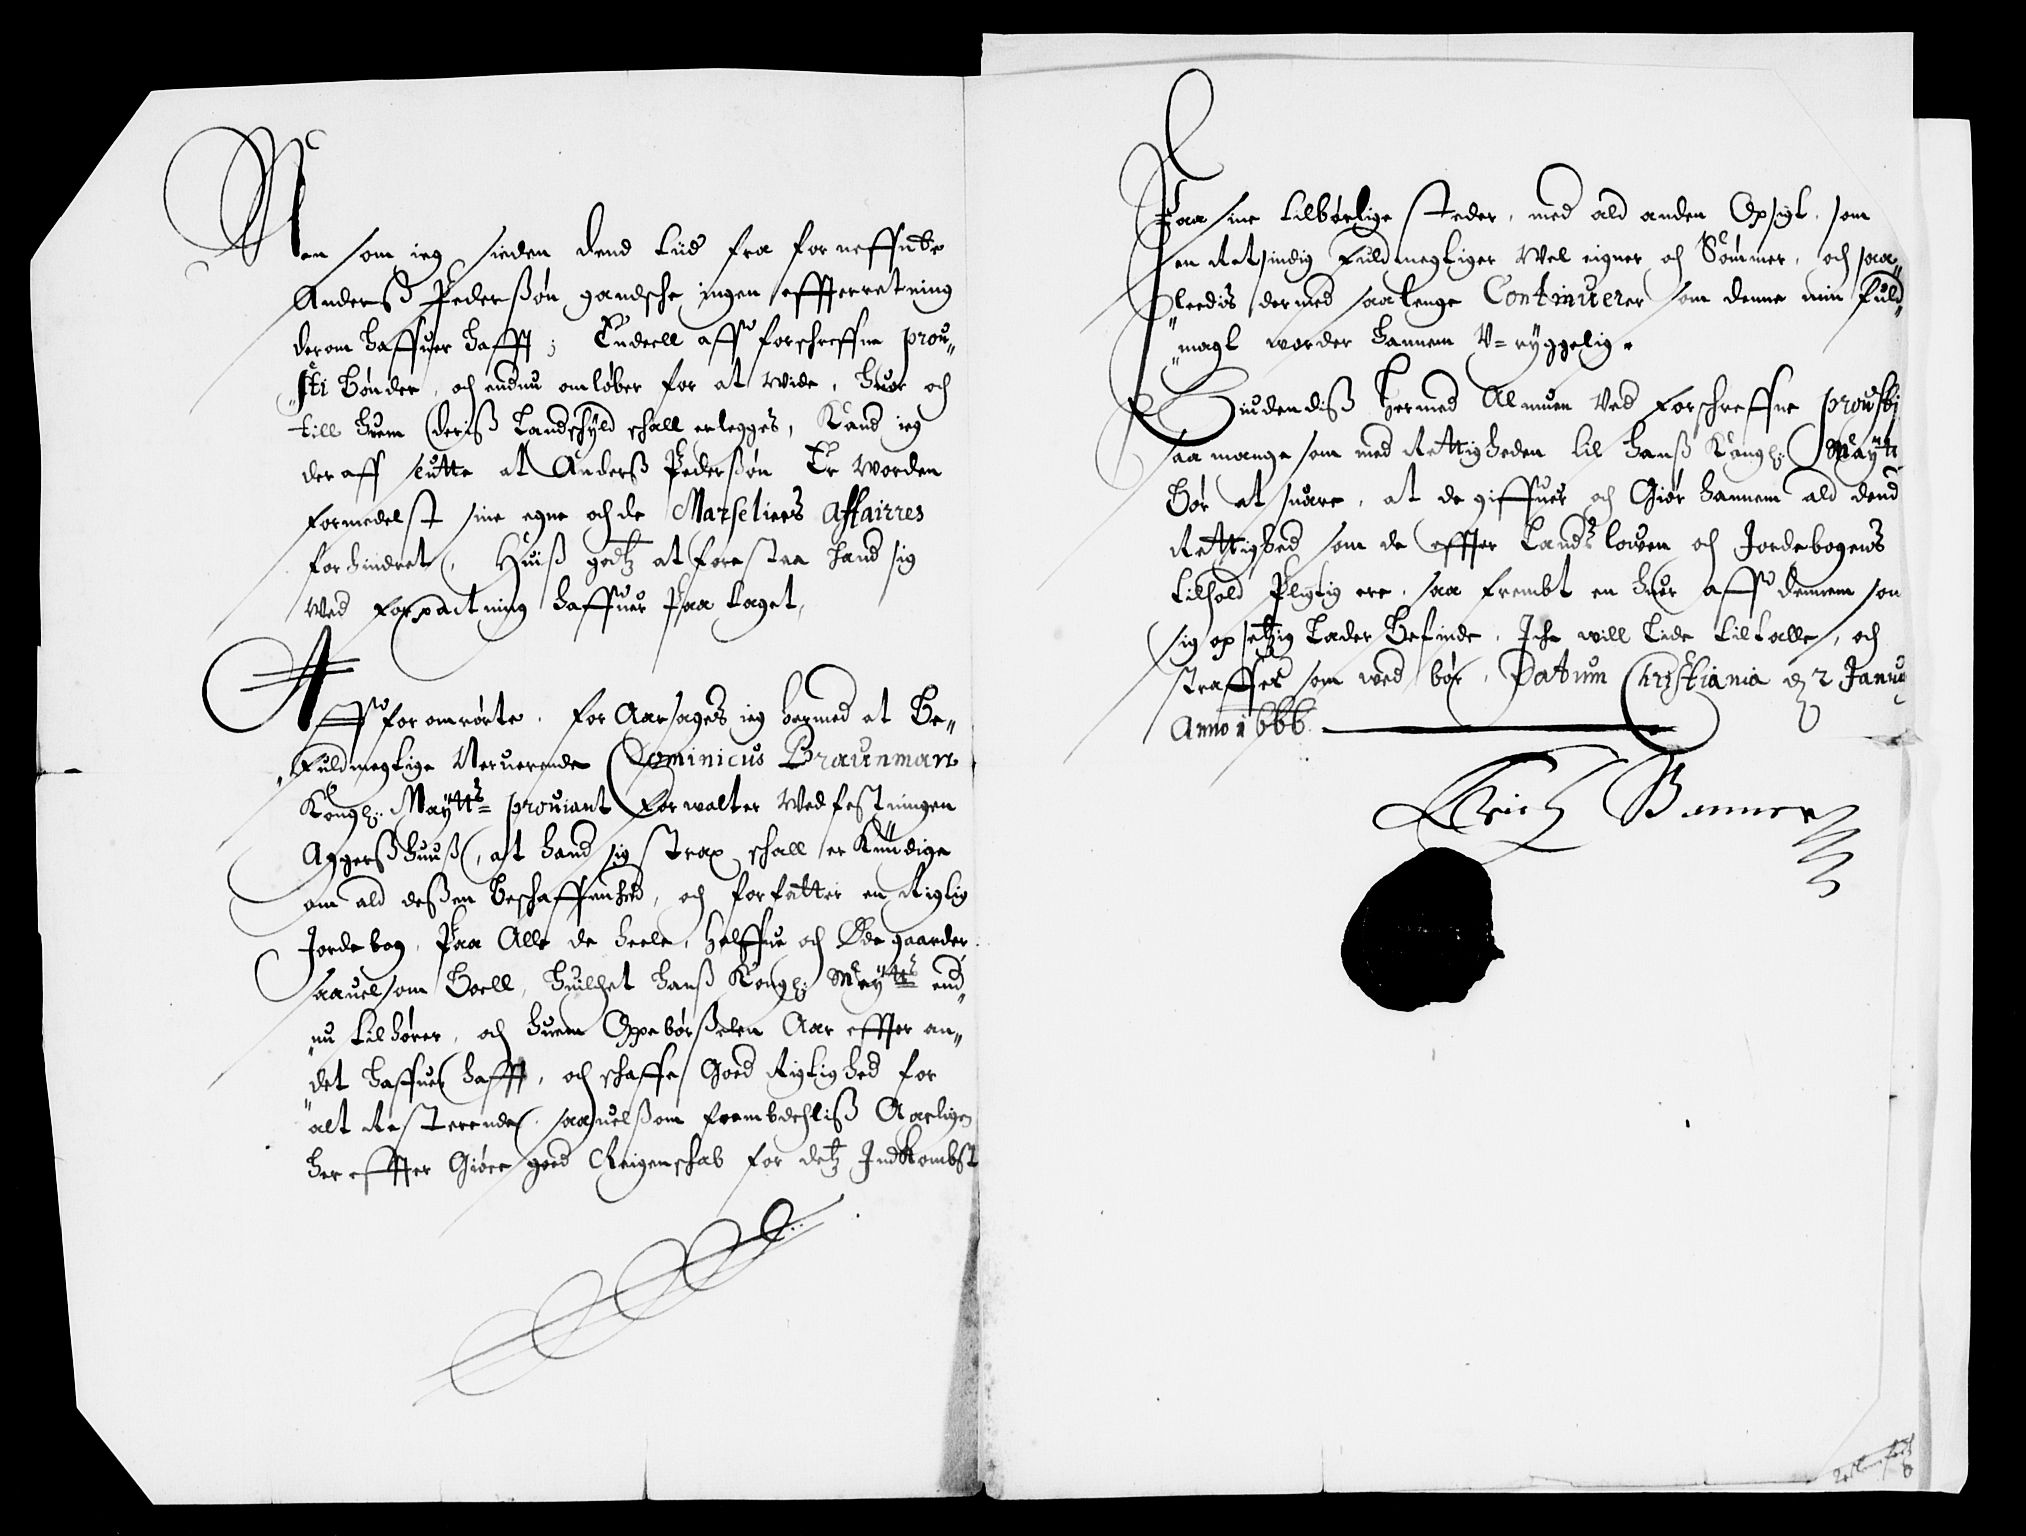 Men som ieg sieden dend tiid fra for neffnte
Anderß Pederßøn gandsche ingen effterretning
derom haffuer hafft; Endeell aff forschreffne prou„
„sti Bønder, och endnu omløber for at wide, huor och
till huem deriß Landschyld schall erlegges, Kand ieg
der aff slutte at Anderß Pederßøn Er worden
formedelst sine egne och de Marseliers Affairres
forhindret, Huiß godtz at forestaa hand sig
wed forpactning haffuer paa taget,
Aff for omrørte, for Aarsages ieg hermed at Be„
„Fuldmegtige Neruerende Dominicus Braunman
Kongl: Maytts prouiant Forwalter Wed festningen
Aggerßhuuß, at hand sig strax schall er Kündige
om ald deßen beschaffenhed, och forfatter en Rigtig
Jordebog, paa Alle de heele, helffue och Øde gaarder
saauelsom Boell, huilchet hanß Kongl: Maytts end„
„nu tilhører, och huem Oppebørßelen Aar effter an„
„det haffuer hafft, och schaffe Goed Rigtighed for
alt Resterende, saauelßom frembdehliß Aarligen
her effter Giøre goed Reigenschab for detz Indkombst
Paa sine tilbørlige steder, med ald anden Opsigt, som
en Retsindig Fuldmegtiger Wel eigner och Sømmer, och saa„
„leedis dermed saalenge Continuerer som denne min Fuld„
„magt worder hannem V-ryggelig.
Biudendiß hermed Almuen Ved Forschreffne prousti
saa mange som med Rettigheden til hanß Kongl: Maytt
Bør at suare, at de giffuer och Giør hannem ald dend
Rettighed som de effter Lands lowen och Jordebogens
tilhold pligtig ere, saa frembt en huer aff dennem som
sig opsetzig Lader Befinde, Iche will Lide tiltalle, och
straffes som wed bør, Datum Christiania d 2 Janu
Anno 1666.
Erich Banner